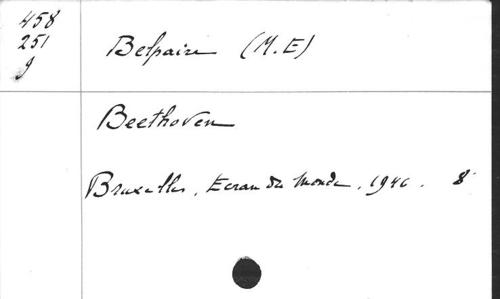 458
251
g
Belpaire (M.E)
Beethoven
Bruxelles, Ecran du Monde, 1946. 8°